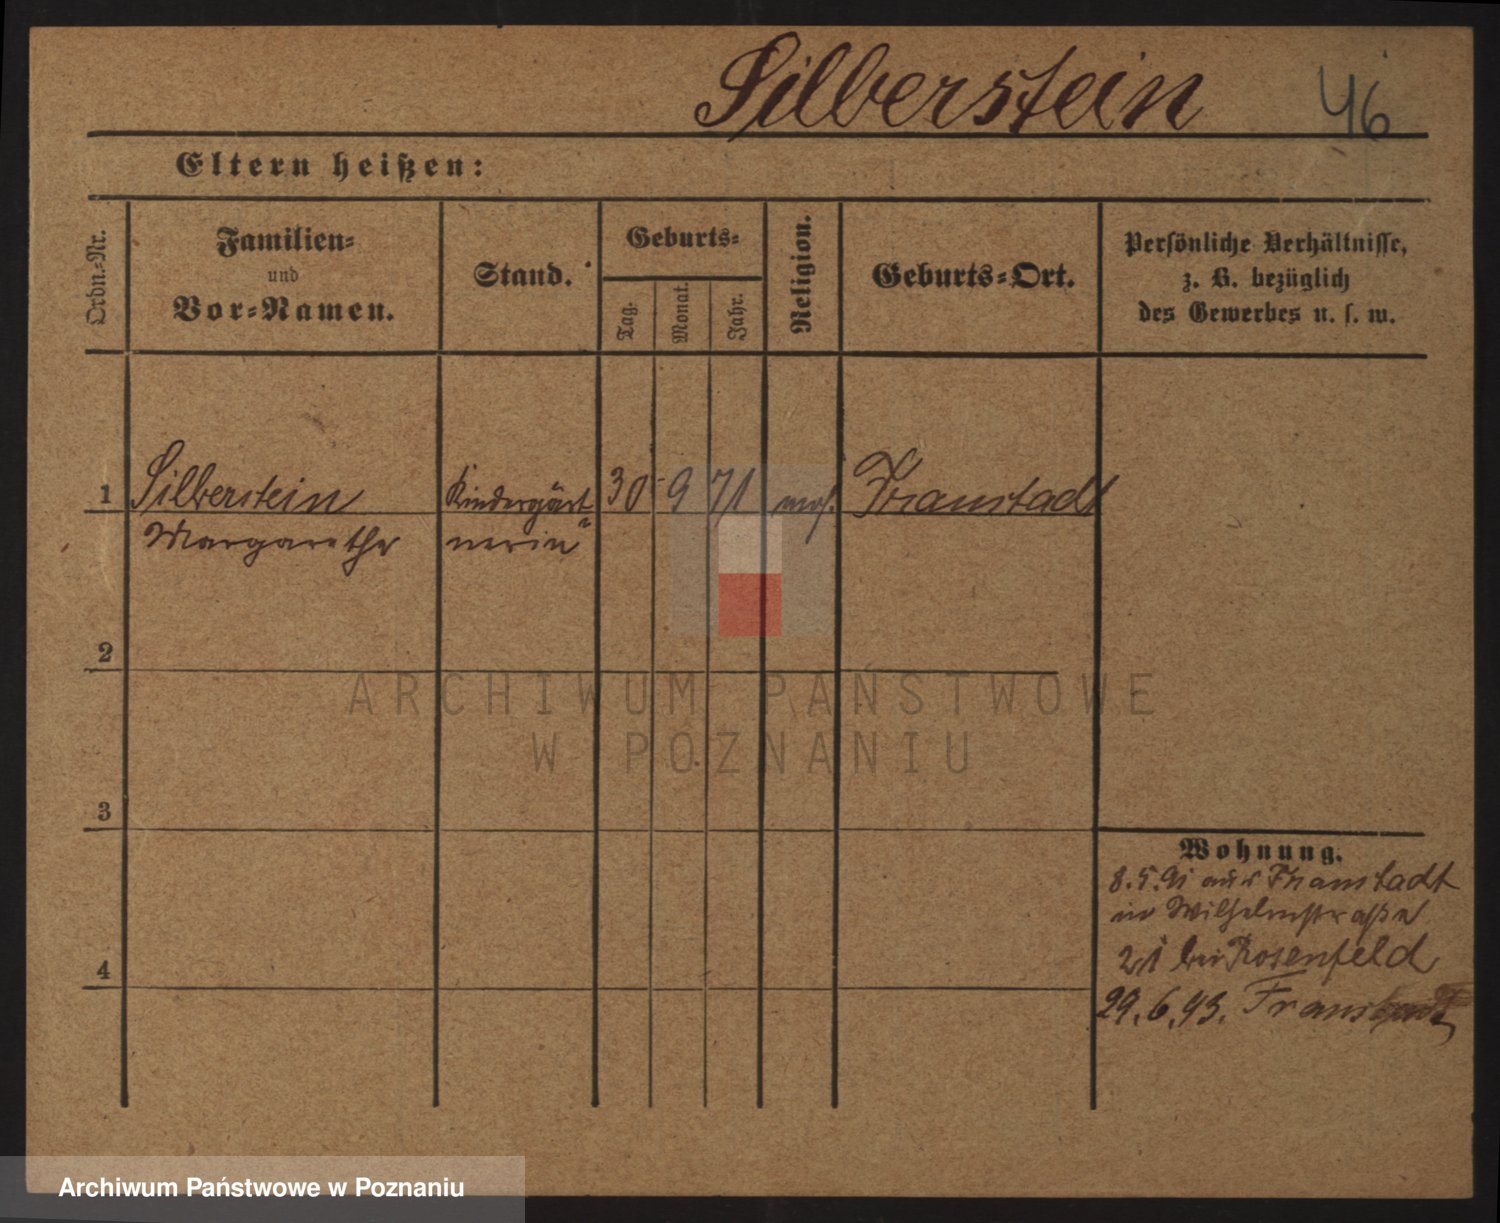 Silberstein 46
Eltern heißen:
Ordn.-Nr.
Familien-
und
Vor-Namen.
Stand.
Geburts-
Tag.
Monat.
Jahr.
Religion.
Geburts-Ort.
Persönliche Verhältnisse,
z. B. bezüglich
des Gewerbes u. s. w.
1 Silberstein Kindergärt 30 9 71 mos. Fraustadt
Margarethe nerin
2
3
4
Wohnung.
8.5.91 aus Fraustadt
in Wilhelmstraße
21 bei Rosenfeld
29.6.93. Fraustadt
ARCHIWUM PAŃSTWOWE
W POZNANIU
Archiwum Państwowe w Poznaniu